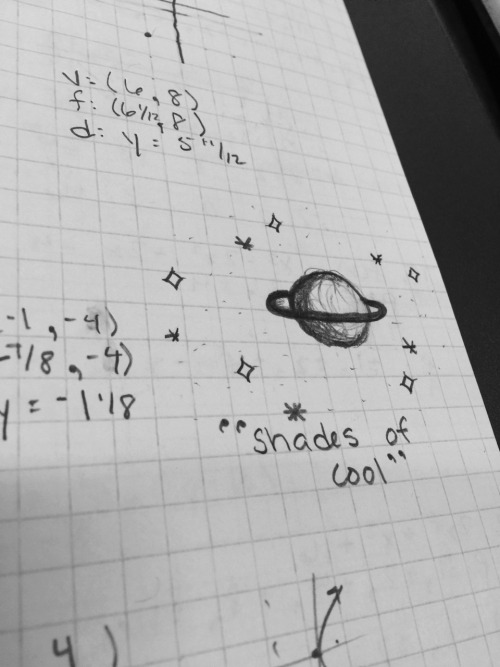 v = (6, 8)
f: (6 1/12, 8)
d: y = 5 11/12
-1, -4)
-7/8, -4)
y = -1 1/8
"shades of
cool"
4)